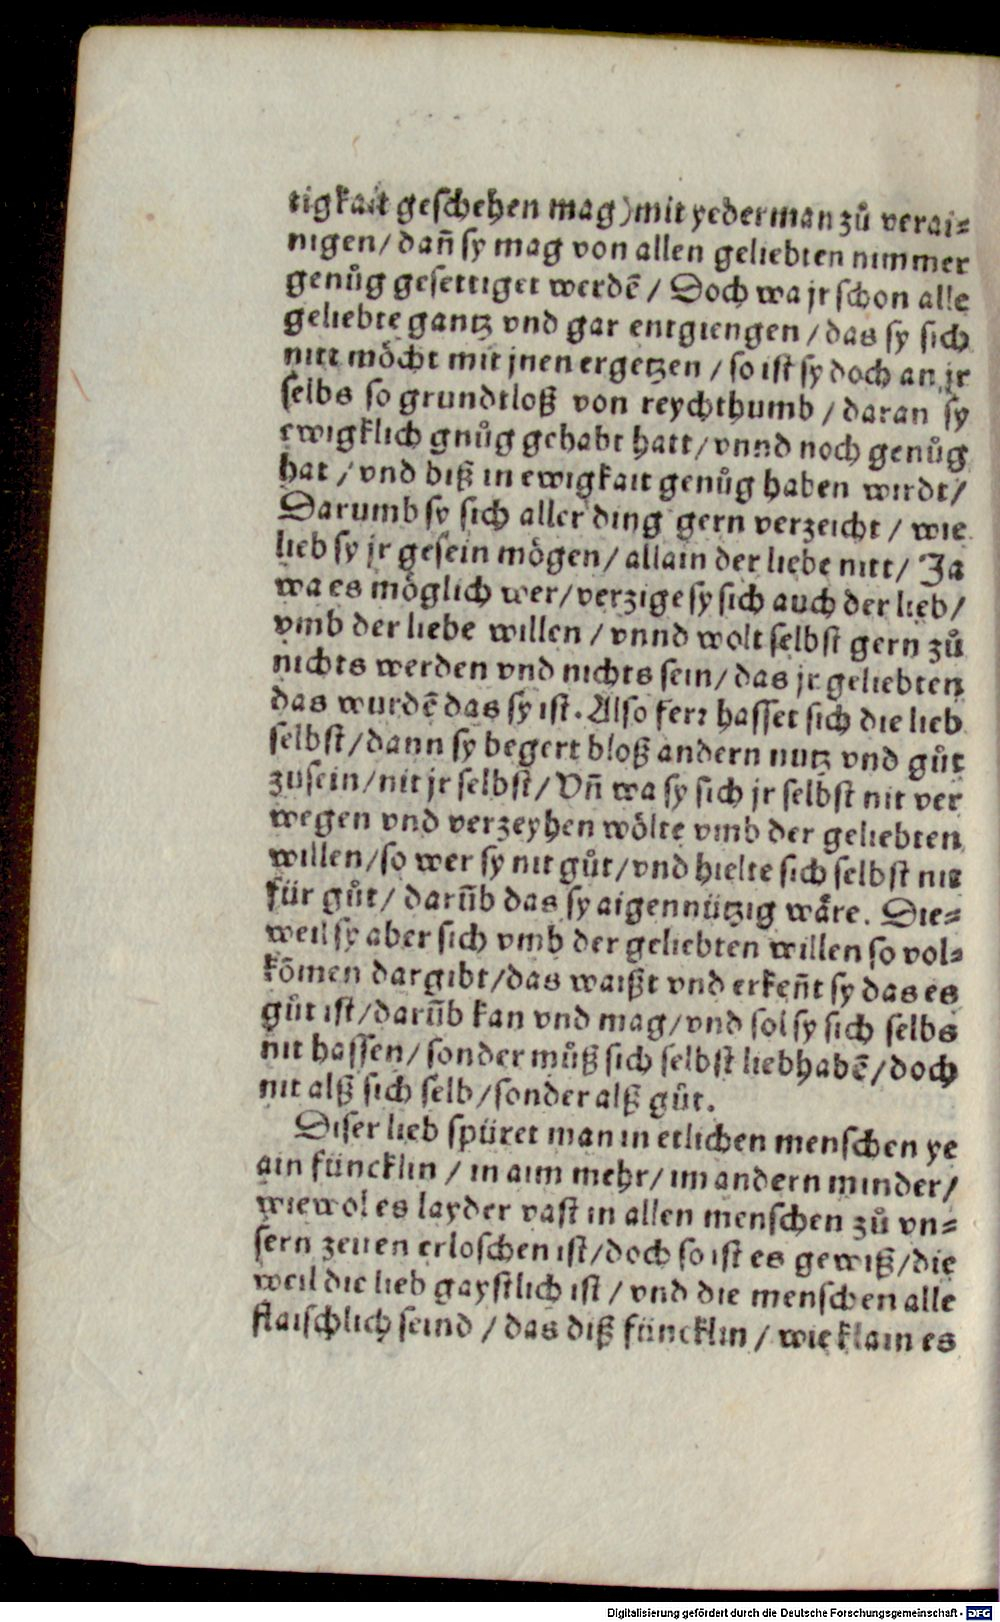 tigkait geschehen mag) mit yederman zů verai⸗
nigen / dañ sy mag von allen geliebten nimmer
genůg gesettiget werdē / Doch wa jr schon alle
geliebte gantz vnd gar entgiengen / das sy sich
nitt möcht mit jnen ergetzen / so ist sy doch an jr
selbs so grundtloß von reychthumb / daran sy
ewigklich gnůg gehabt hatt / vnnd noch genůg
hat / vnd biß in ewigkait genůg haben wirdt /
Darumb sy sich aller ding gern verzeicht / wie
lieb sy jr gesein mögen / allain der liebe nitt / Ja
wa es möglich wer / verzige sy sich auch der lieb /
vmb der liebe willen / vnnd wolt selbst gern zů
nichts werden vnd nichts sein / das jr geliebten
das wurdē das sy ist. Also ferꝛ hasset sich die lieb
selbst / dann sy begert bloß andern nutz vnd gůt
zusein / nit jr selbst / Vñ wa sy sich jr selbst nit ver
wegen vnd verzeyhen wölte vmb der geliebten
willen / so wer sy nit gůt / vnd hielte sich selbst nit
für gůt / darũb das sy aigennützig wäre. Die⸗
weil sy aber sich vmb der geliebten willen so vol⸗
kõmen dargibt / das waißt vnd erkeñt sy das es
gůt ist / darũb kan vnd mag / vnd sol sy sich selbs
nit hassen / sonder můß sich selbst liebhabē / doch
nit alß sich selb / sonder alß gůt.
Diser lieb spüret man in etlichen menschen ye
ain füncklin / in aim mehr / im andern minder /
wiewol es layder vast in allen menschen zů vn⸗
sern zeiten erloschen ist / doch so ist es gewiß / die
weil die lieb gaystlich ist / vnd die menschen alle
flaischlich seind / das diß füncklin / wie klain es
Digitalisierung gefördert durch die Deutsche Forschungsgemeinschaft - DFG